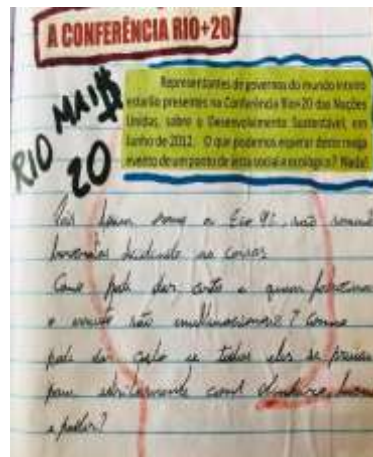 A CONFERÊNCIA RIO+20
Representantes de governos do mundo inteiro
estarão presentes na Conferência Rio+20 das Nações
Unidas, sobre o Desenvolvimento Sustentável, em
Junho de 2012. O que podemos esperar deste mega
evento de um ponto de vista social e ecológico? Nada!
RIO MAI$
20
como a Eco 92, não
decidindo as coisas
Como pode dar certo e quem patrocina
o evento são multinacionais? Como
pode dar certo se todos eles se
com dinheiro,
e poder?